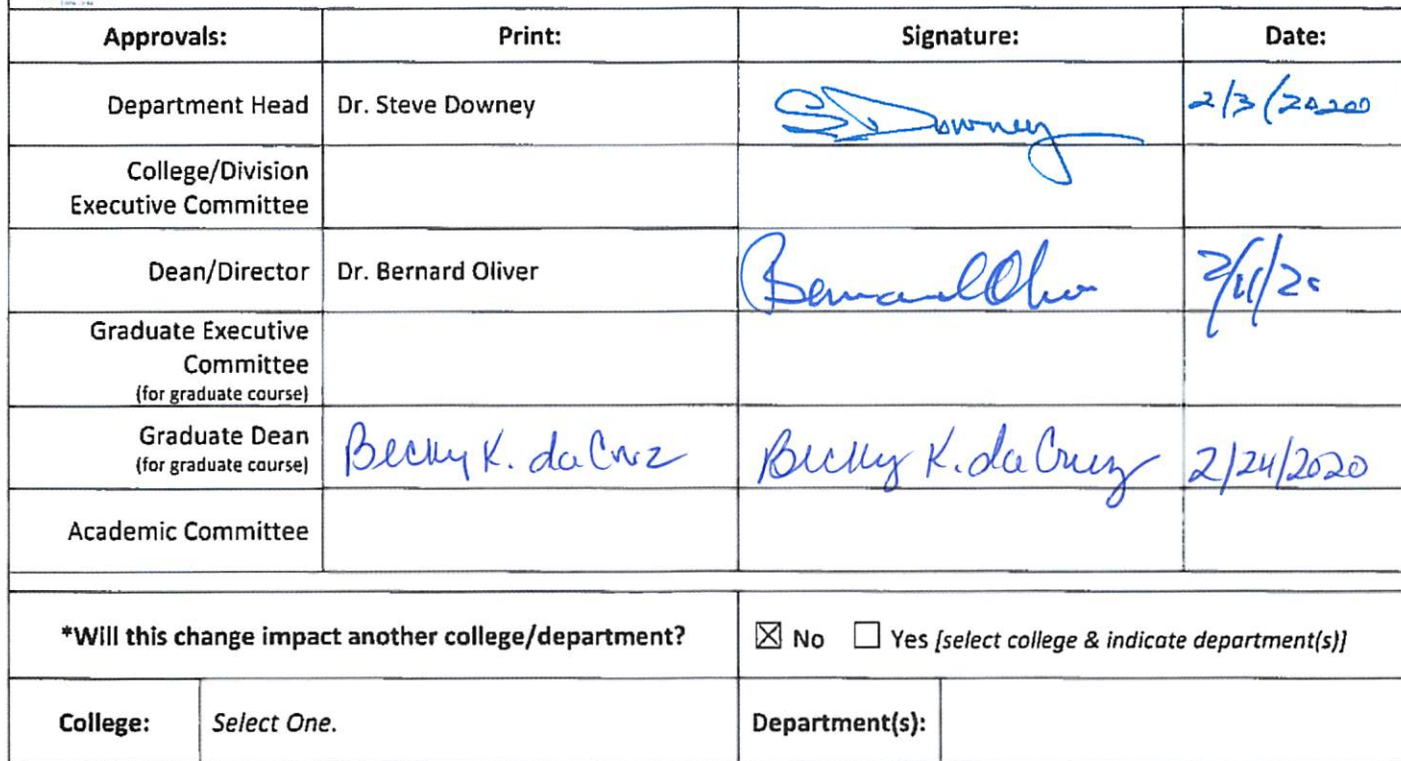 Approvals: Print: Signature: Date:
Department Head Dr. Steve Downey S Downey 2/3/2020
College/Division
Executive Committee
Dean/Director Dr. Bernard Oliver Bernard Oliver 2/11/20
Graduate Executive
Committee
(for graduate course)
Graduate Dean Becky K. da Cruz Becky K. da Cruz 2/24/2020
(for graduate course)
Academic Committee
*Will this change impact another college/department? ☒ No ☐ Yes [select college & indicate department(s)]
College: Select One. Department(s):